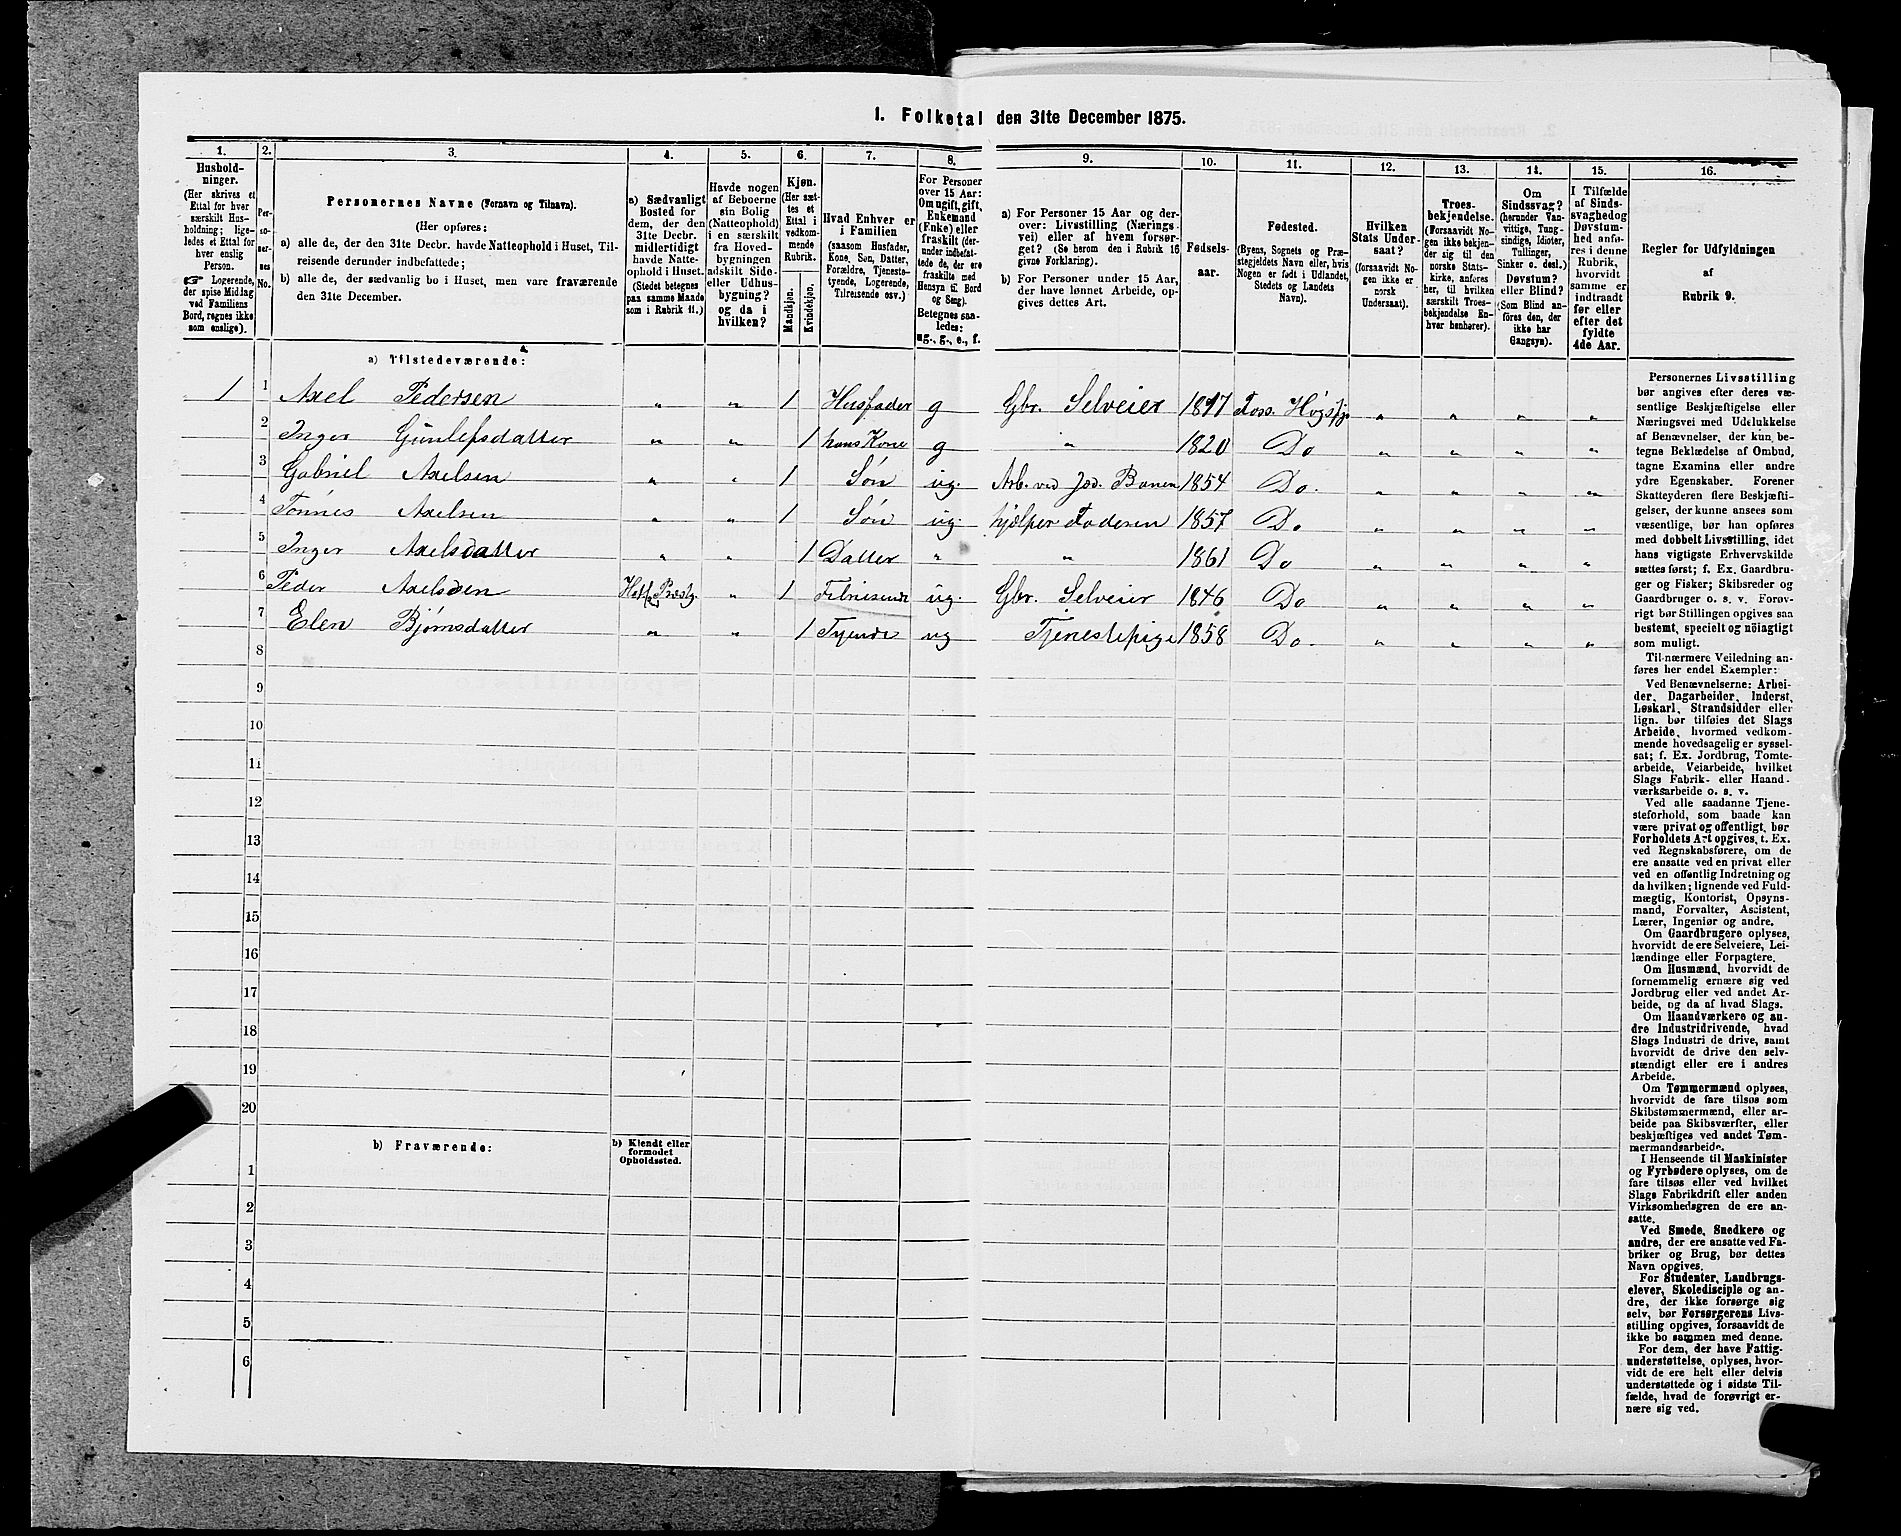 1. Folketal den 31te December 1875.
1.
Hushold-
ninger.
(Her skrives et
Ettal for hver
særskilt Hus-
holdning; lige-
ledes et Ettal for
hver enslig
Person.
☞ Logerende,
der spise Middag
ved Familiens
Bord, regnes ikke
som enslige).
2.
Per-
so-
ner-
nes
No.
3.
Personernes Navne (Fornavn og Tilnavn).
(Her opføres:
a) alle de, der den 31te Decbr. havde Natteophold i Huset, Til-
reisende derunder indbefattede;
b) alle de, der sædvanlig bo i Huset, men vare fraværende
den 31te December.
4.
a) Sædvanligt
Bosted for
dem, der den
31te Decbr.
midlertidigt
havde Natte-
ophold i Huset.
(Stedet betegnes
paa samme Maade
som i Rubrik 11.)
5.
Havde nogen
af Beboerne
sin Bolig
(Natteophold)
i en særskilt
fra Hoved-
bygningen
adskilt Side-
eller Udhus-
bygning?
og da i
hvilken?
6.
Kjøn.
(Her sæt-
tes et
Ettal i
vedkom-
mende
Rubrik.
Mandkjøn.
Kvindekjøn.
7.
Hvad Enhver er
i Familien
(saasom Husfader,
Kone, Søn, Datter,
Forældre, Tjeneste-
tyende, Logerende,
Tilreisende osv.)
8.
For Personer
over 15 Aar:
Om ugift, gift,
Enkemand
(Enke) eller
fraskilt (der-
under indbefat-
tede de, der ere
fraskilte med
Hensyn til Bord
og Seng).
Betegnes saa-
ledes:
ug., g., e., f.
9.
a) For Personer 15 Aar og der-
over: Livsstilling (Nærings-
vei) eller af hvem forsør-
get? (Se herom den i Rubrik 16
givne Forklaring).
b) For Personer under 15 Aar,
der have lønnet Arbeide, op-
gives dettes Art.
10.
Fødsels-
aar.
11.
Fødested.
(Byens, Sognets og Præ-
stegjeldets Navn eller, hvis
Nogen er født i Udlandet,
Stedets og Landets
Navn).
12.
Hvilken
Stats Under-
saat?
(forsaavidt No-
gen ikke er
norsk
Undersaat).
13.
Troes-
bekjendelse.
(Forsaavidt No-
gen ikke bekjen-
der sig til den
norske Stats-
kirke, anføres
her, til hvilken
særskilt Troes-
bekjendelse En-
hver henhører).
14.
Om
Sindssvag?
(herunder Van-
vittige, Tung-
sindige, Idioter,
Tullinger,
Sinker o. desl.)
Døvstum?
eller Blind?
(Som Blind an-
føres den, der
ikke har
Gangsyn).
15.
I Tilfælde
af Sinds-
svaghed og
Døvstum-
hed anfø-
res i denne
Rubrik,
hvorvidt
samme er
indtraadt
før eller
efter det
fyldte
4de Aar.
16.
Regler for Udfyldningen
af
Rubrik 9.
a) Tilstedeværende:
1 1 Axel Pedersen „ „ 1 Husfader g Gbr. Selveier 1817 Foss. Høgsfj. „ „ „ „
2 Inger Gunlefsdatter „ „ 1 hans Kone g „ 1820 Do „ „ „ „
3 Gabriel Axelsen „ „ 1 Søn ug. Arb. ved Jæd. Banen 1854 Do. „ „ „ „
4 Tönnes Axelsen „ „ 1 Søn ug. hjælper Faderen 1857 Do „ „ „ „
5 Inger Axelsdatter „ „ 1 Datter „ „ 1861 Do „ „ „ „
6 Peder Axelsøen Præstg. „ 1 Tilreisende ug. Gbr. Selveier 1846 Do „ „ „ „
7 Elen Bjørnsdatter „ „ 1 Tyende ug Tjenestepige 1858 Do. „ „ „ „
8
9
10
11
12
13
14
15
16
17
18
19
20
b) Fraværende:
b) Kjendt eller
formodet
Opholdssted.
1
2
3
4
5
6
Personernes Livsstilling
bør angives efter deres væ-
sentlige Beskjæftigelse eller
Næringsvei med Udelukkelse
af Benævnelser, der kun be-
tegne Beklædelse af Ombud,
tagne Examina eller andre
ydre Egenskaber. Forener
Skatteyderen flere Beskjæfti-
gelser, der kunne ansees som
væsentlige, bør han opføres
med dobbelt Livsstilling, idet
hans vigtigste Erhvervskilde
sættes først; f. Ex. Gaardbru-
ger og Fisker; Skibsreder og
Gaardbruger o. s. v. Forøv-
rigt bør Stillingen opgives saa
bestemt, specielt og nöiagtigt
som muligt.
Til nærmere Veiledning an-
føres her endel Exempler:
Ved Benævnelserne: Arbei-
der, Dagarbeider, Inderst,
Løskarl, Strandsidder eller
lign. bør tilføies det Slags
Arbeide, hvormed vedkom-
mende hovedsagelig er syssel-
sat; f. Ex. Jordbrug, Tomte-
arbeide, Veiarbeide, hvilket
Slags Fabrik- eller Haand-
værksarbeide o. s. v.
Ved alle saadanne Tjene-
steforhold, som baade kan
være privat og offentligt, bør
Forholdets Art opgives, t. Ex.
ved Regnskabsførere, om de
ere ansatte ved en privat eller
ved en offentlig Indretning og
da hvilken; lignende ved Fuld-
mægtig, Kontorist, Opsyns-
mand, Forvalter, Assistent,
Lærer, Ingeniør og andre.
Om Gaardbrugere oplyses,
hvorvidt de ere Selveiere, Lei-
lændinge eller Forpagtere.
Om Husmænd, hvorvidt de
fornemmelig ernære sig ved
Jordbrug eller ved andet Ar-
beide, og da af hvad Slags.
Om Haandværkere og an-
dre Industridrivende, hvad
Slags Industri de drive, samt
hvorvidt de drive den selv-
stændigt eller ere i andres
Arbeide.
Om Tømmermænd oplyses,
hvorvidt de fare tilsøs som
Skibstømmermænd, eller ar-
beide paa Skibsværfter, eller
beskjæftiges ved andet Tøm-
mermandsarbeide.
I Henseende til Maskinister
og Fyrbødere oplyses, om de
fare tilsøs eller ved hvilket
Slags Fabrikdrift eller anden
Virksomhedsgren de ere an-
satte.
Ved Smede, Snedkere og
andre, der ere ansatte ved Fa-
briker og Brug, bør dettes
Navn opgives.
For Studenter, Landbrugs-
elever, Skoledisciple og an-
dre, der ikke forsørge sig
selv, bør Forsørgerens Livs-
stilling opgives, forsaavidt de
ikke bo sammen med denne.
For dem, der have Fattig-
understøttelse, oplyses, hvor-
vidt de ere helt eller delvis
understøttede og i sidste Til-
fælde, hvad de forøvrigt er-
nære sig ved.